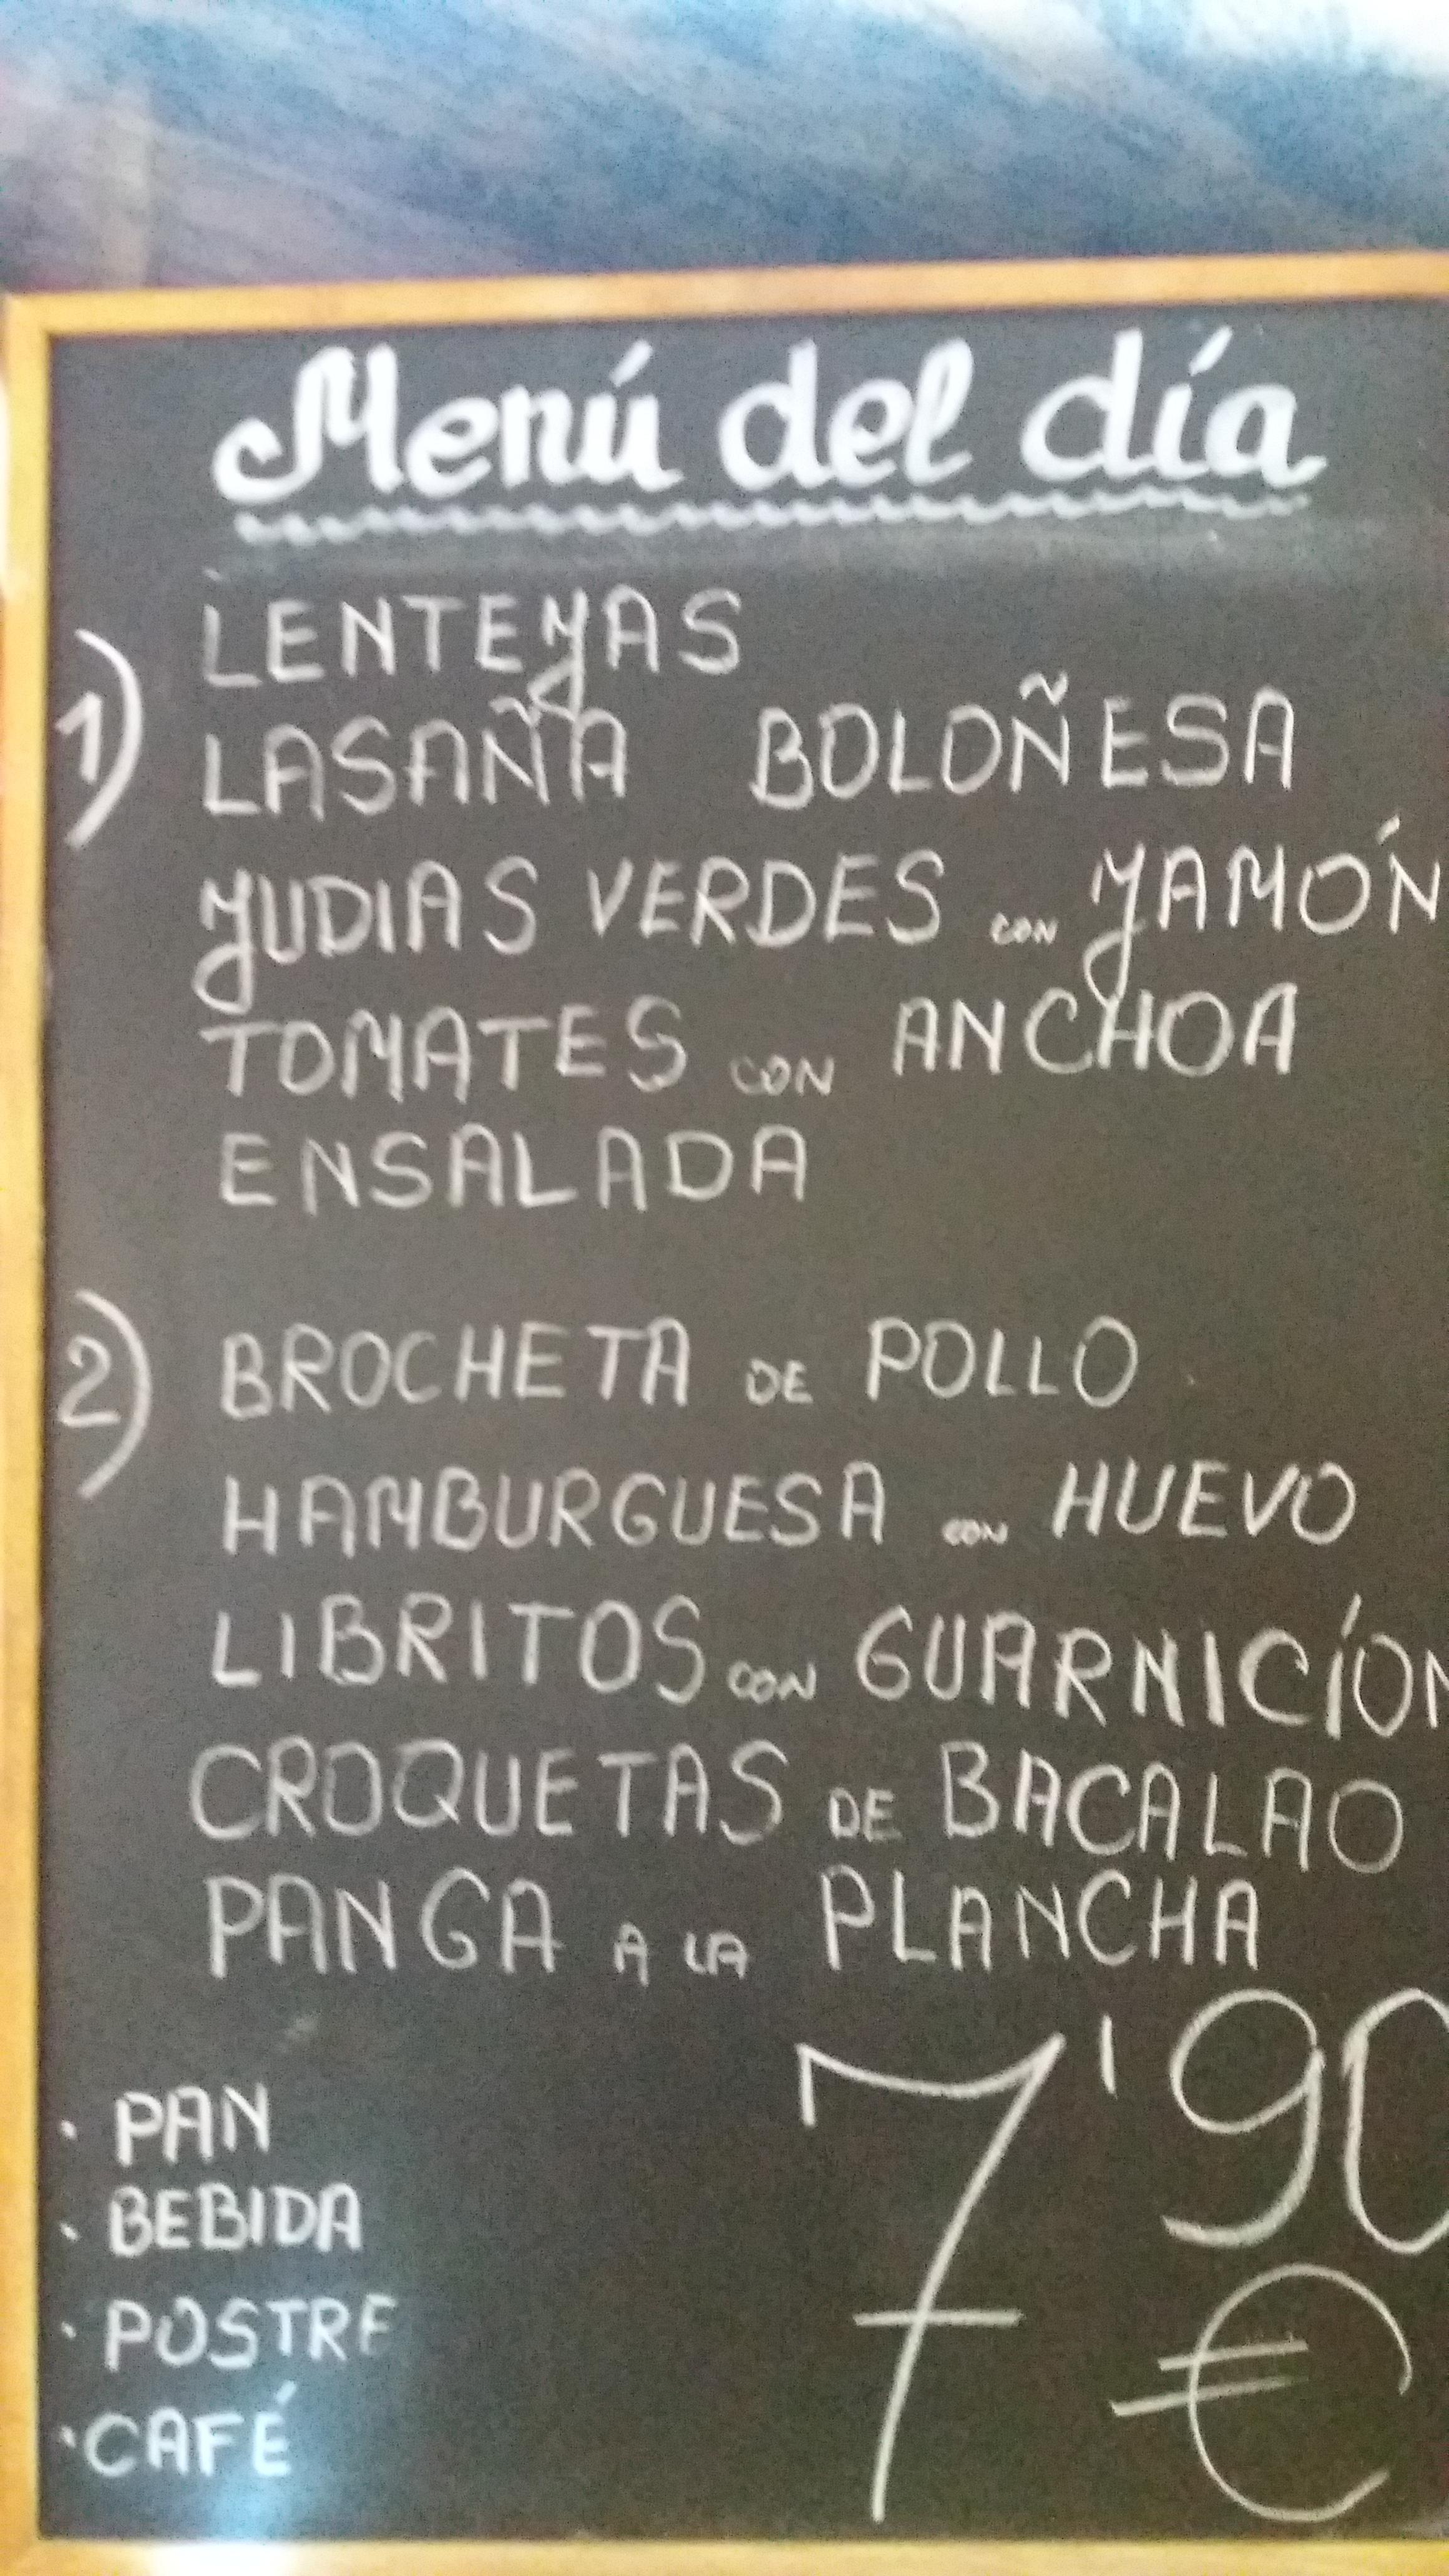 Menú del día
1) LENTEJAS
LASAÑA BOLOÑESA
JUDIAS VERDES CON JAMÓN
TOMATES CON ANCHOA
ENSALADA
2) BROCHETA DE POLLO
HAMBURGUESA CON HUEVO
LIBRITOS CON GUARNICÍON
CROQUETAS DE BACALAO
PANGA A LA PLANCHA
7'90
€
· PAN
· BEBIDA
· POSTRE
· CAFÉ